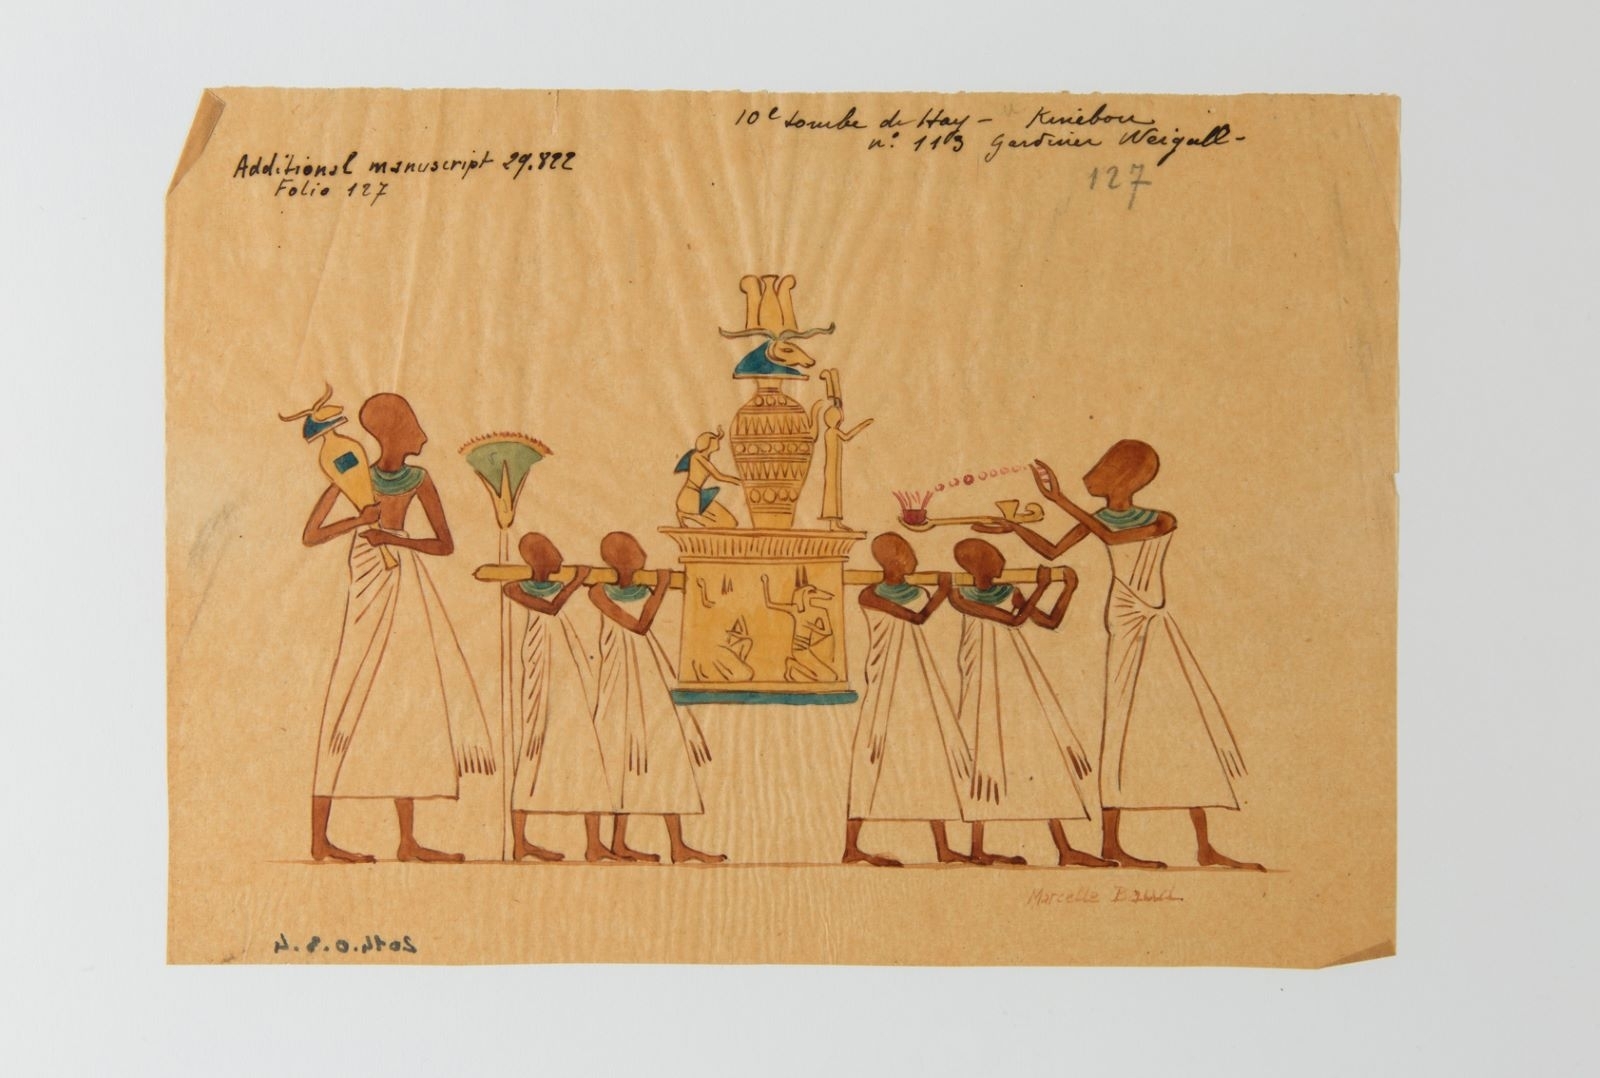 10e tombe de Hay - Kinebou
n° 113 Gardiner Weigall -
Additional manuscript 29.822
Folio 127
127
Marcelle Baud
2014.0.8.4